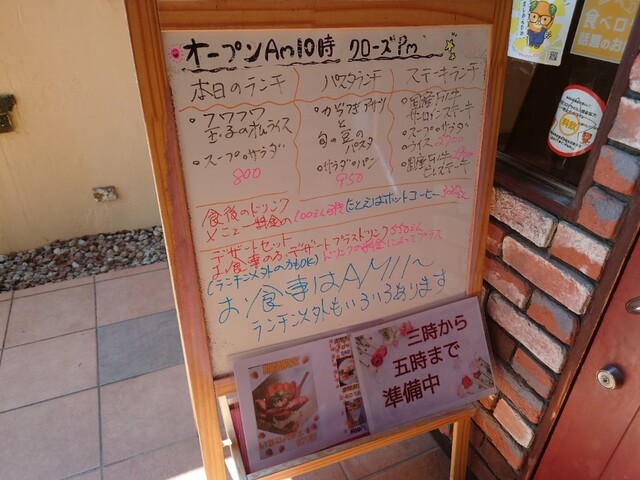 オープンAm10時 クローズPm
本日のランチ
・フワフワ
玉子のオムライス
・スープ・サラダ
800
パスタランチ
・からつきアサリ
と
旬の豆の
パスタ
・サラダ・パン
950
ステーキランチ
・国産牛
サーロインステーキ
・スープ・サラダ
ライス
・国産牛
ヒレステーキ
食後のドリンク
メニュー料金の100えん引 たとえばホットコーヒー
デザートセット
お食事の方、デザートプラスドリンク550えん
(ランチ以外の方もOK) ドリンクの料金によってプラス
お食事はAM11〜
ランチ以外もいろいろあります
三時から
五時まで
準備中